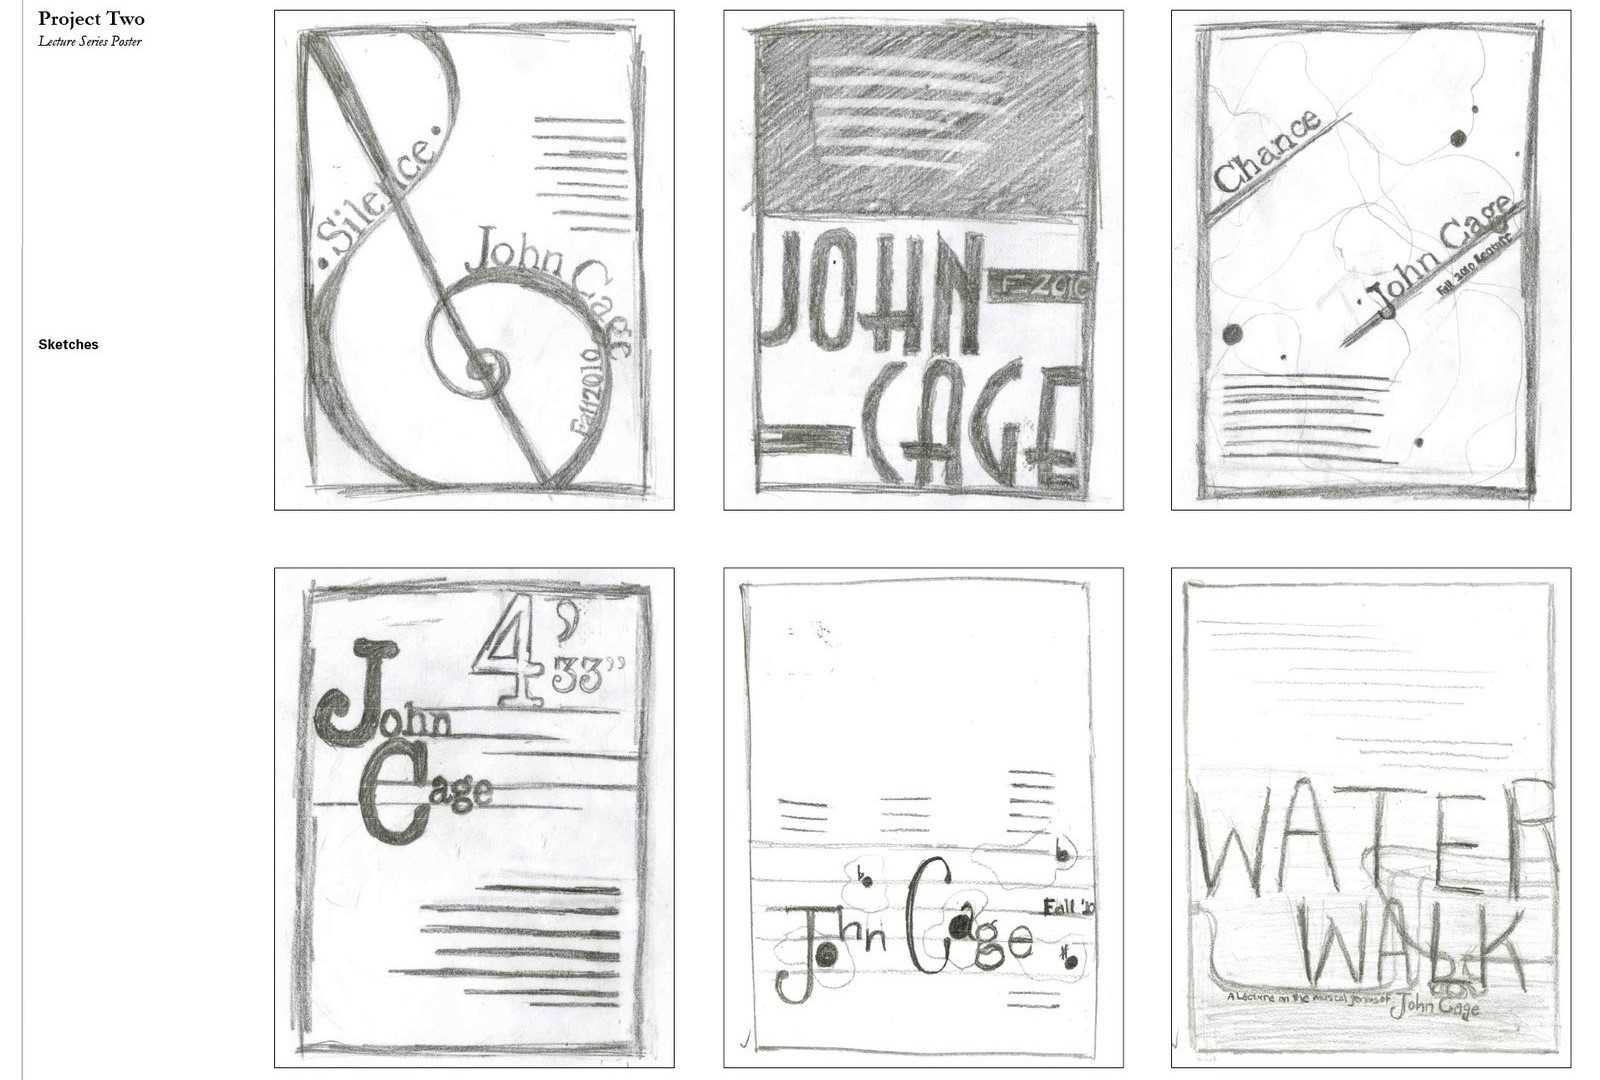 Project Two
Lecture Series Poster
Sketches
Silence
John Cage
Fall 2010
JOHN
F-2010
CAGE
Chance
John Cage
Fall 2010 Lecture
4' 33"
John
Cage
John Cage
Fall '10
WATER
WALK
A Lecture on the musical genius of John Cage